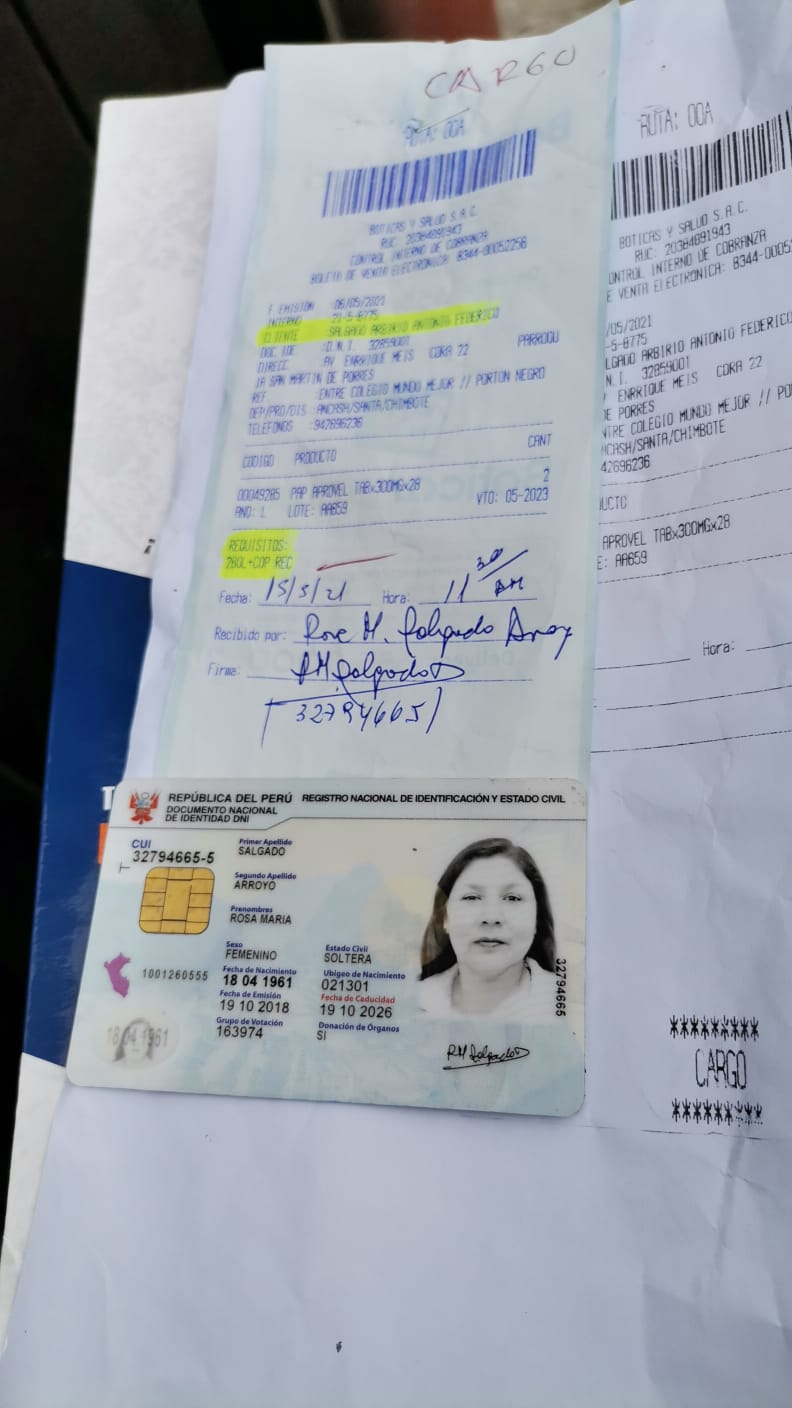 CARGO
RUTA: 00A
BOTICAS Y SALUD S.A.C.
RUC: 20384891943
CONTROL INTERNO DE COBRANZA
BOLETO DE VENTA ELECTRONICA: B344-00052256
F. EMISION :06/05/2021
INTERNO :21-5-8775
CLIENTE :SALGADO ARBIRIO ANTONIO FEDERICO
DOC. IDE :D.N.I. 32859001
DIRECC. :AV ENRRIQUE MEIS CDRA 22 PARROQU
IA SAN MARTIN DE PORRES
REF. :ENTRE COLEGIO MUNDO MEJOR // PORTON NEGRO
DEP/PRO/DIS :ANCASH/SANTA/CHIMBOTE
TELEFONOS :942696236
CODIGO PRODUCTO CANT
00049285 PAP APROVEL TABx300MGx28 2
ANO: 1 LOTE: AA659 VTO: 05-2023
REQUISITOS:
2BOL+COP REC
Fecha: 15/5/21 Hora: 11 30 AM
Recibido por: Rosa M. Salgado Arroy
Firma: RMSalgado
32794665
RUTA: 00A
BOTICAS Y SALUD S.A.C.
RUC: 20384891943
ONTROL INTERNO DE COBRANZA
E VENTA ELECTRONICA: B344-0005
/05/2021
-5-8775
LGADO ARBIRIO ANTONIO FEDERICO
N.I. 32859001
ENRRIQUE MEIS CDRA 22
DE PORRES
NTRE COLEGIO MUNDO MEJOR // PO
NCASH/SANTA/CHIMBOTE
42696236
UCTO
APROVEL TABx300MGx28
E: AA659
Hora:
*********
CARGO
*********
REPÚBLICA DEL PERÚ REGISTRO NACIONAL DE IDENTIFICACIÓN Y ESTADO CIVIL
DOCUMENTO NACIONAL
DE IDENTIDAD DNI
CUI
32794665-5
Primer Apellido
SALGADO
Segundo Apellido
ARROYO
Prenombres
ROSA MARIA
Sexo
FEMENINO
Estado Civil
SOLTERA
Fecha de Nacimiento
18 04 1961
Ubigeo de Nacimiento
021301
Fecha de Emisión
19 10 2018
Fecha de Caducidad
19 10 2026
Grupo de Votación
163974
Donación de Órganos
SI
1001260555
18 04 1961
32794665
RMSalgado